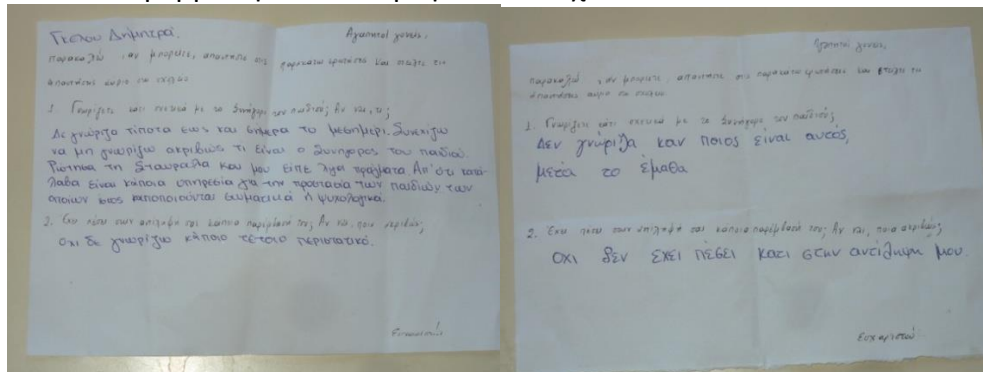 Γκέκου Δήμητρα.
Αγαπητοί γονείς,
παρακαλώ, αν μπορείτε, απαντήστε στις παρακάτω ερωτήσεις και στείλτε τις
απαντήσεις αύριο στο σχολείο
1. Γνωρίζετε κάτι σχετικά με το Συνήγορο του παιδιού; Αν ναι, τι;
Δε γνώριζα τίποτα εως και σήμερα το μεσημέρι. Συνεχίζω
να μη γνωρίζω ακριβώς τι είναι ο Συνήγορος του παιδιού.
Ρώτησα τη Σταυρούλα και μου είπε λίγα πράγματα. Απ' ότι κατά-
λαβα είναι κάποια υπηρεσία για την προστασία των παιδιών των
οποίων ίσως κακοποιούνται σωματικά ή ψυχολογικά.
2. Έχει πέσει στην αντίληψή σας κάποια παρέμβασή του; Αν ναι, ποια ακριβώς;
Οχι δε γνωρίζω κάποιο τέτοιο περιστατικό.
Ευχαριστώ
Αγαπητοί γονείς,
παρακαλώ, αν μπορείτε, απαντήστε στις παρακάτω ερωτήσεις και στείλτε τις
απαντήσεις αύριο στο σχολείο
1. Γνωρίζετε κάτι σχετικά με το Συνήγορο του παιδιού;
Δεν γνώριζα καν ποιος είναι αυτός,
μετά το έμαθα
2. Έχει πέσει στην αντίληψή σας κάποια παρέμβασή του; Αν ναι, ποια ακριβώς;
Οχι δεν έχει πέσει κάτι στην αντίληψη μου.
Ευχαριστώ